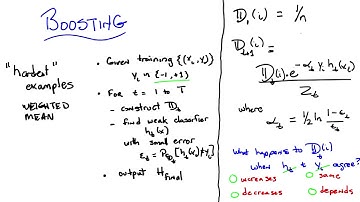 BOOSTING
"hardest"
examples
WEIGHTED
MEAN
• Given training {(xᵢ, yᵢ)}
yᵢ in {-1,+1}
• For t = 1 to T
- construct 𝔻ₜ
- find weak classifier
hₜ(x)
with small error
εₜ = P_𝔻ₜ[hₜ(xᵢ)≠yᵢ]
• output H_final
𝔻₁(i) = 1/n
𝔻ₜ₊₁(i) =
𝔻ₜ(i)·e^(-αₜ yᵢ hₜ(xᵢ))
Zₜ
where
αₜ = 1/2 ln (1-εₜ)/εₜ
what happens to 𝔻ₜ(i)
when hₜ + yᵢ agree?
increases same
decreases depends